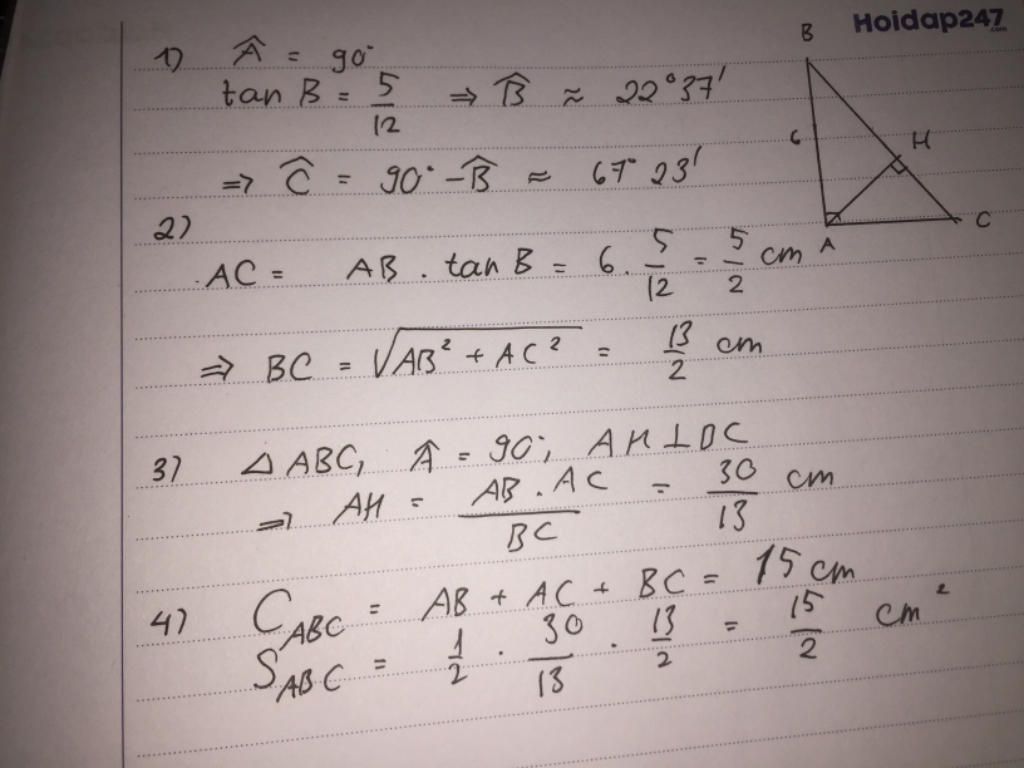 Hoidap247.com
1) Â = 90°
tan B = 5/12 ⇒ B̂ ≈ 22°37'
⇒ Ĉ = 90° - B̂ ≈ 67°23'
2)
AC = AB . tan B = 6 . 5/12 = 5/2 cm
⇒ BC = √(AB² + AC²) = 13/2 cm
3) △ABC, Â = 90°, AH ⊥ BC
⇒ AH = AB . AC / BC = 30/13 cm
4) C_ABC = AB + AC + BC = 15 cm
S_ABC = 1/2 . 30/13 . 13/2 = 15/2 cm²
B
6
H
A
C